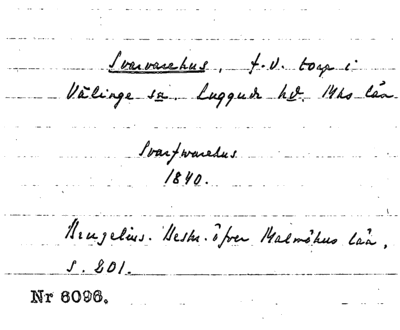 Svarvarehus, f.d. torp i
Välinge sn. Luggude hd. Mhs län
Svarfwarehus
1840.
Bengelius. Beskr. öfver Malmöhus län,
s. 201.
Nr 6096.